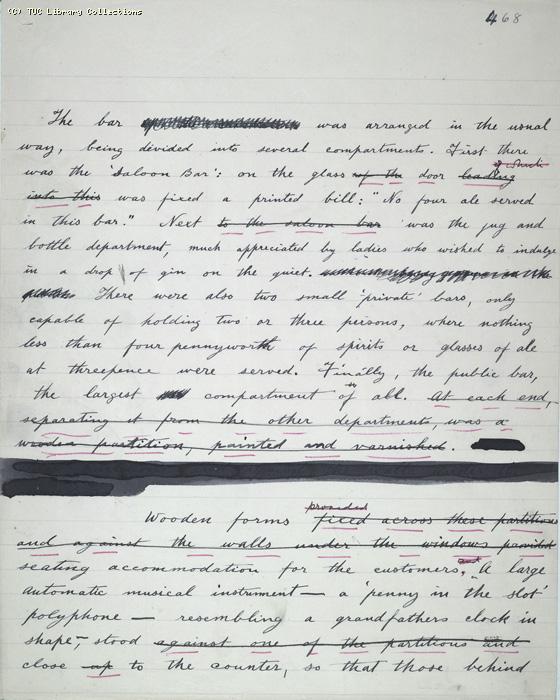 (C) TUC Library Collections
468
The bar was arranged in the usual
way, being divided into several compartments. First there
of which
was the 'Saloon Bar': on the glass of the door leading
into this was fixed a printed bill: "No four ale served
in this bar." Next to the saloon bar was the jug and
bottle department, much appreciated by ladies who wished to indulge
in a drop of gin on the quiet.
There were also two small 'private' bars, only
capable of holding two or three persons, where nothing
less than fourpennyworth of spirits or glasses of ale
at threepence were served. Finally, the public bar,
the largest compartment of all. At each end,
separating it from the other departments, was a
wooden partition, painted and varnished.
provided
Wooden forms fixed across these partitions
and against the walls under the windows provided
seating accommodation for the customers, and A large
automatic musical instrument — a 'penny in the slot'
polyphone — resembling a grandfathers clock in
shape, stood against one of the partitions and
close up to the counter, so that those behind